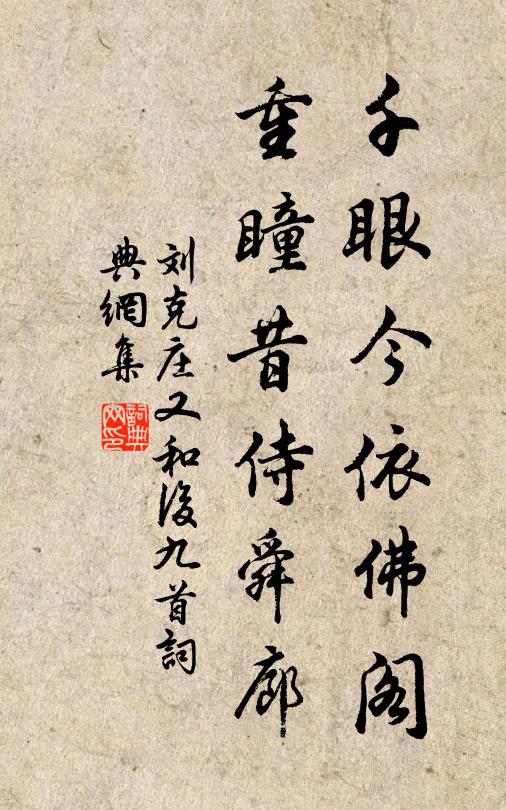 千眼今依佛阁
重瞳昔侍舜廊
刘克庄又和後九首詞
典網集
詞典
网印